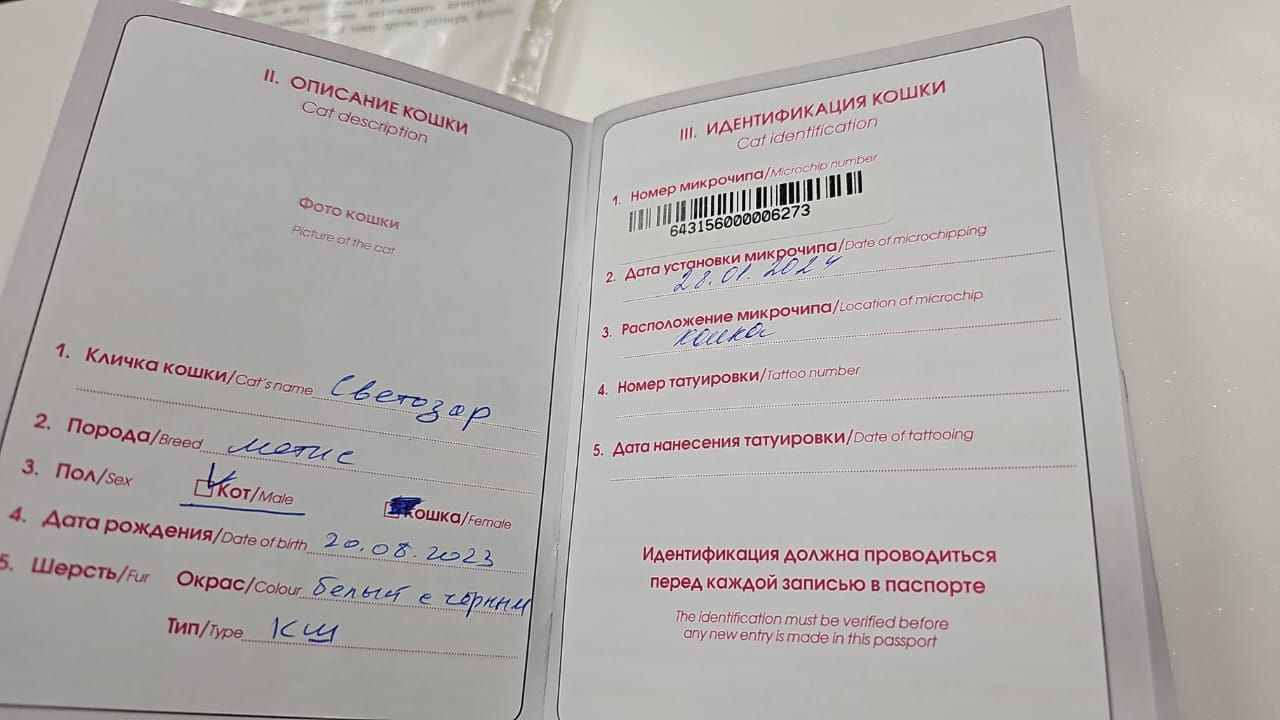 II. ОПИСАНИЕ КОШКИ
Cat description
Фото кошки
Picture of the cat
1. Кличка кошки/Cat's name Светозар
2. Порода/Breed метис
3. Пол/Sex Кот/Male Кошка/Female
4. Дата рождения/Date of birth 20.08.2023
5. Шерсть/Fur Окрас/Colour белый с чёрным
Тип/Type КШ
III. ИДЕНТИФИКАЦИЯ КОШКИ
Cat identification
1. Номер микрочипа/Microchip number
643156000006273
2. Дата установки микрочипа/Date of microchipping
28.01.2024
3. Расположение микрочипа/Location of microchip
холка
4. Номер татуировки/Tattoo number
5. Дата нанесения татуировки/Date of tattooing
Идентификация должна проводиться
перед каждой записью в паспорте
The identification must be verified before
any new entry is made in this passport